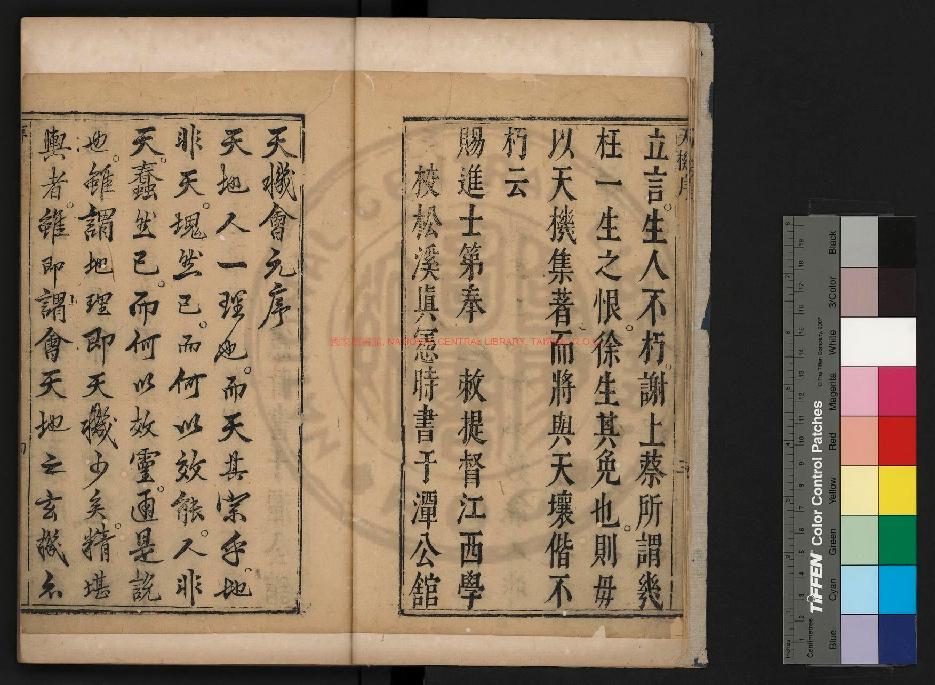 立言生人不朽謝上蔡所謂幾
枉一生之恨徐生其免也則毋
以天機集著而將與天壤偕不
朽云
賜進士第奉 敕提督江西學
校松溪真憲時書于潭公館
天機會元序
天地人一理也而天其宗乎地
非天塊然已而何以效能人非
天蠢然已而何以效靈邇是説
也雖謂地理即天機少矣精堪
輿者雖即謂會天地之玄機亦
國家圖書館, NATIONAL CENTRAL LIBRARY, TAIWAN, R.O.C.
Centimetres
Inches
TIFFEN Color Control Patches
© The Tiffen Company, 2007
Blue
Cyan
Green
Yellow
Red
Magenta
White
3/Color
Black